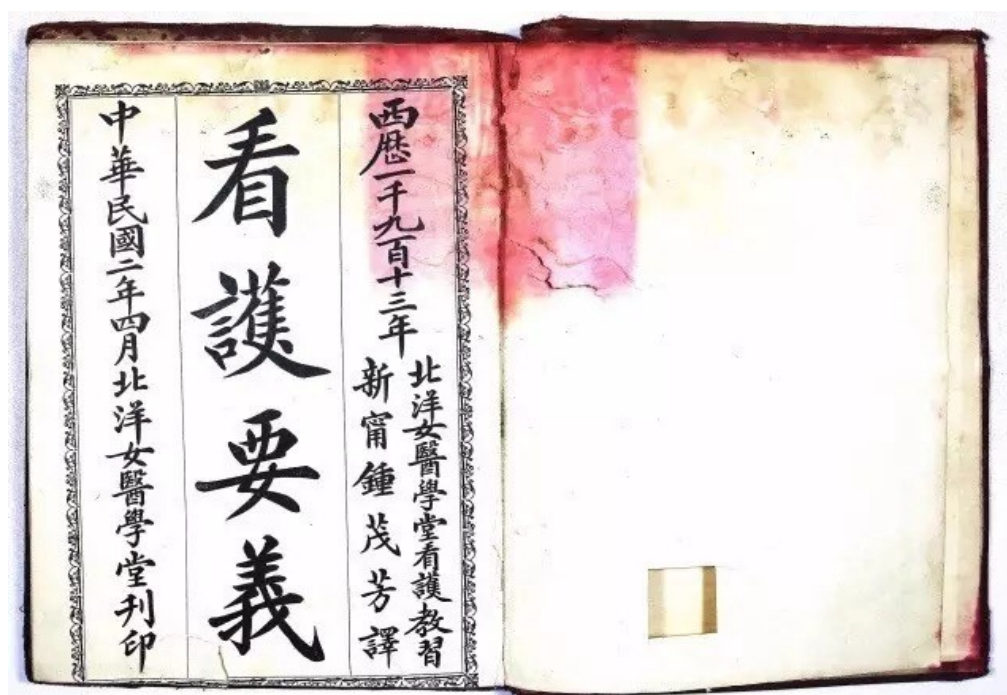 西歷一千九百十三年
北洋女醫學堂看護教習
新甯鍾茂芳譯
看護要義
中華民國二年四月北洋女醫學堂刋印